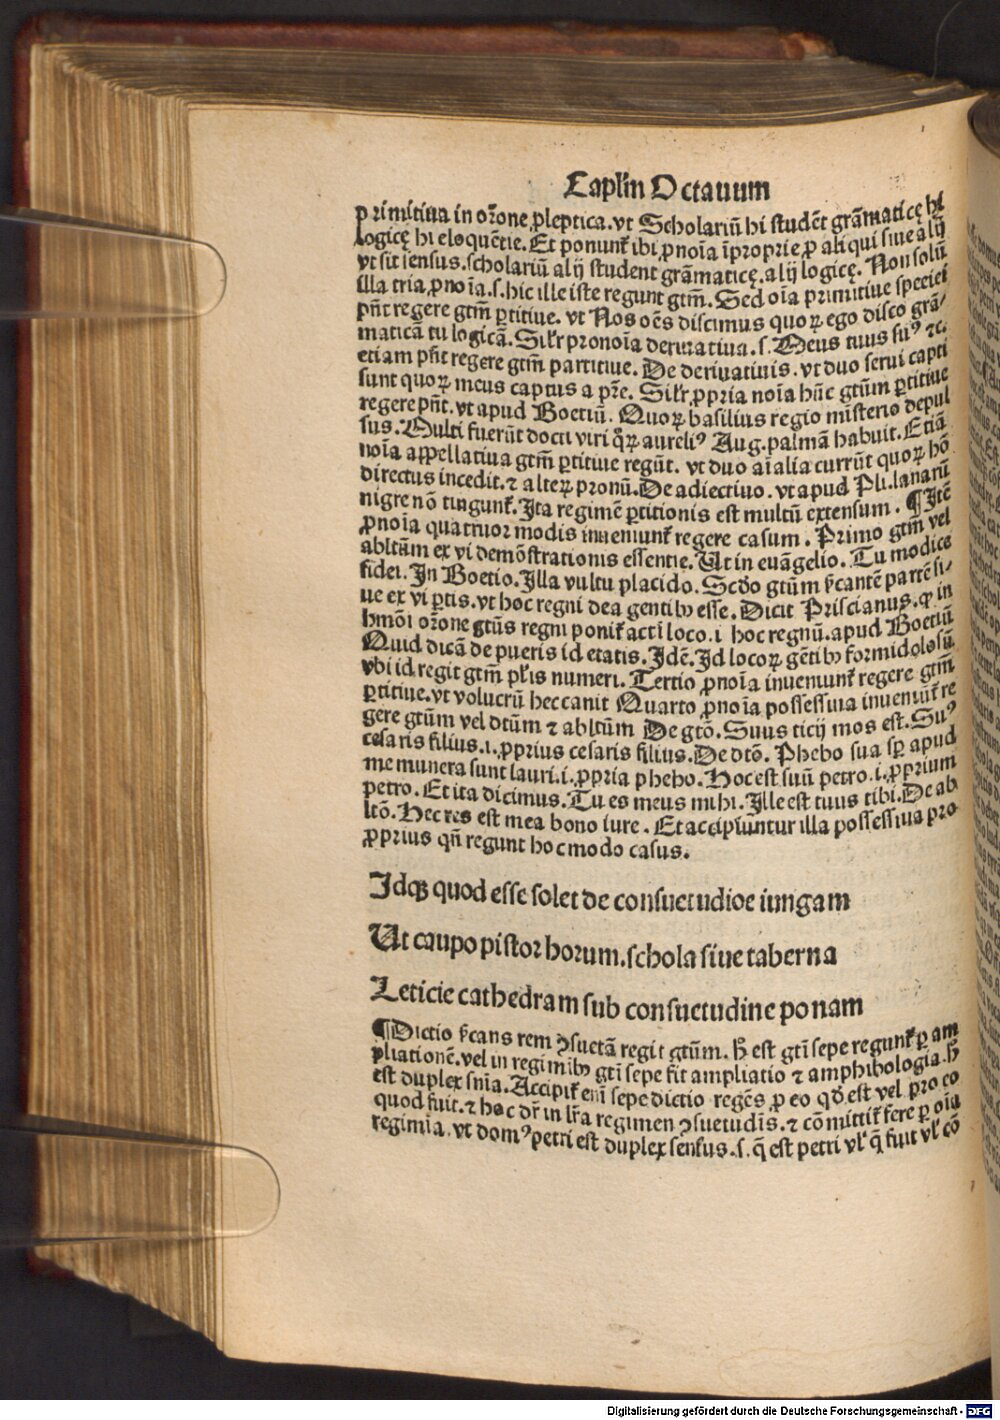 Caplm Octauum
primitiua in orõne ꝓleptica. vt Scholariũ hi studẽt grãmaticę hi
logicę hi eloquẽtie. Et ponunt̃ ibi ꝓnoĩa ĩproprie ꝓ ali qui siue alij
vt sit sensus. scholariũ alij student grãmaticę. alij logicę. Non solũ
illa tria ꝓnoĩa. s. hic ille iste regunt gtm̃. Sed oĩa primitiue speciei
pñt regere gtm̃ ꝑtitiue. vt Nos oẽs discimus quoꝝ ego disco grã-
maticã tu logicã. Silr̃ pronoĩa deriuatiua. s. Meus tuus suꝰ ⁊c.
etiam pñt regere gtm̃ partitiue. De deriuatiuis. vt duo serui capti
sunt quoꝝ meus captus a pr̃e. Silr̃ ꝓpria noĩa hũc gtũm ꝑtitiue
regere pñt. vt apud Boetiũ. Quoꝝ basilius regio misterio depul
sus. Multi fuerũt docti viri q̃ꝝ aureliꝰ Aug. palmã habuit. Etiã
noĩa appellatiua gtm̃ ꝑtitiue regũt. vt duo aĩalia currũt quoꝝ hõ
directus incedit. ⁊ alteꝝ pronũ. De adiectiuo. vt apud Pli. lanarũ
nigre nõ tingunt̃. Ita regimẽ ꝑtitionis est multũ extensum. ¶Itẽ
ꝓnoĩa quattuor modis inueniunt̃ regere casum. Primo gtm̃ vel
abltũm ex vi demõstrationis essentie. Ut in euãgelio. Tu modice
fidei. In Boetio. Illa vultu placido. Scd̃o gtũm sꝰcantẽ partẽ si-
ue ex vi ꝑtis. vt hoc regni dea gentibꝫ esse. Dicit Priscianus. ꝙ in
hmõi orõne gtũs regni ponit̃ acti loco. i hoc regnũ. apud Boetiũ
Quid dicã de pueris id etatis. Idẽ. Id locoꝝ gẽtibꝫ formidolosũ
vbi id regit gtm̃ plr̃is numeri. Tertio ꝓnoĩa inueniunt̃ regere gtm̃
ꝑtitiue. vt volucrũ hec canit Quarto ꝓnoĩa possessiua inueniũt̃ re
gere gtũm vel dtũm ⁊ abltũm De gtõ. Suus ticij mos est. Suꝰ
cesaris filius. i. ꝓprius cesaris filius. De dtõ. Phebo sua sꝑ apud
me munera sunt lauri. i. ꝓpria phebo. Hoc est suũ petro. i. ꝓprium
petro. Et ita dicimus. Tu es meus mihi. Ille est tuus tibi. De ab
ltõ. Hec res est mea bono iure. Et accipiũntur illa possessiua pro
ꝓprius qñ regunt hoc modo casus.
Idqꝫ quod esse solet de consuetudine iungam
Ut caupo pistor horum. schola siue taberna
Leticie cathedram sub consuetudine ponam
¶Dictio sꝰcans rem ꝯsuetã regit gtũm. H̃ est gti sepe regunt̃ ꝑ am
pliationẽ. vel in regimibꝫ gti sepe fit ampliatio ⁊ amphibologia. H̃
est duplex sñia. Accipit̃ eni sepe dictio regẽs ꝓ eo qd̃ est vel pro eo
quod fuit. ⁊ hoc dr̃ in lr̃a regimen ꝯsuetudĩs. ⁊ cõmittit̃ fere ꝑ oĩa
regimĩa. vt domꝰ petri est duplex sensus. s. q̃ est petri vl̃ q̃ fuit vl̃ cõ
Digitalisierung gefördert durch die Deutsche Forschungsgemeinschaft - DFG